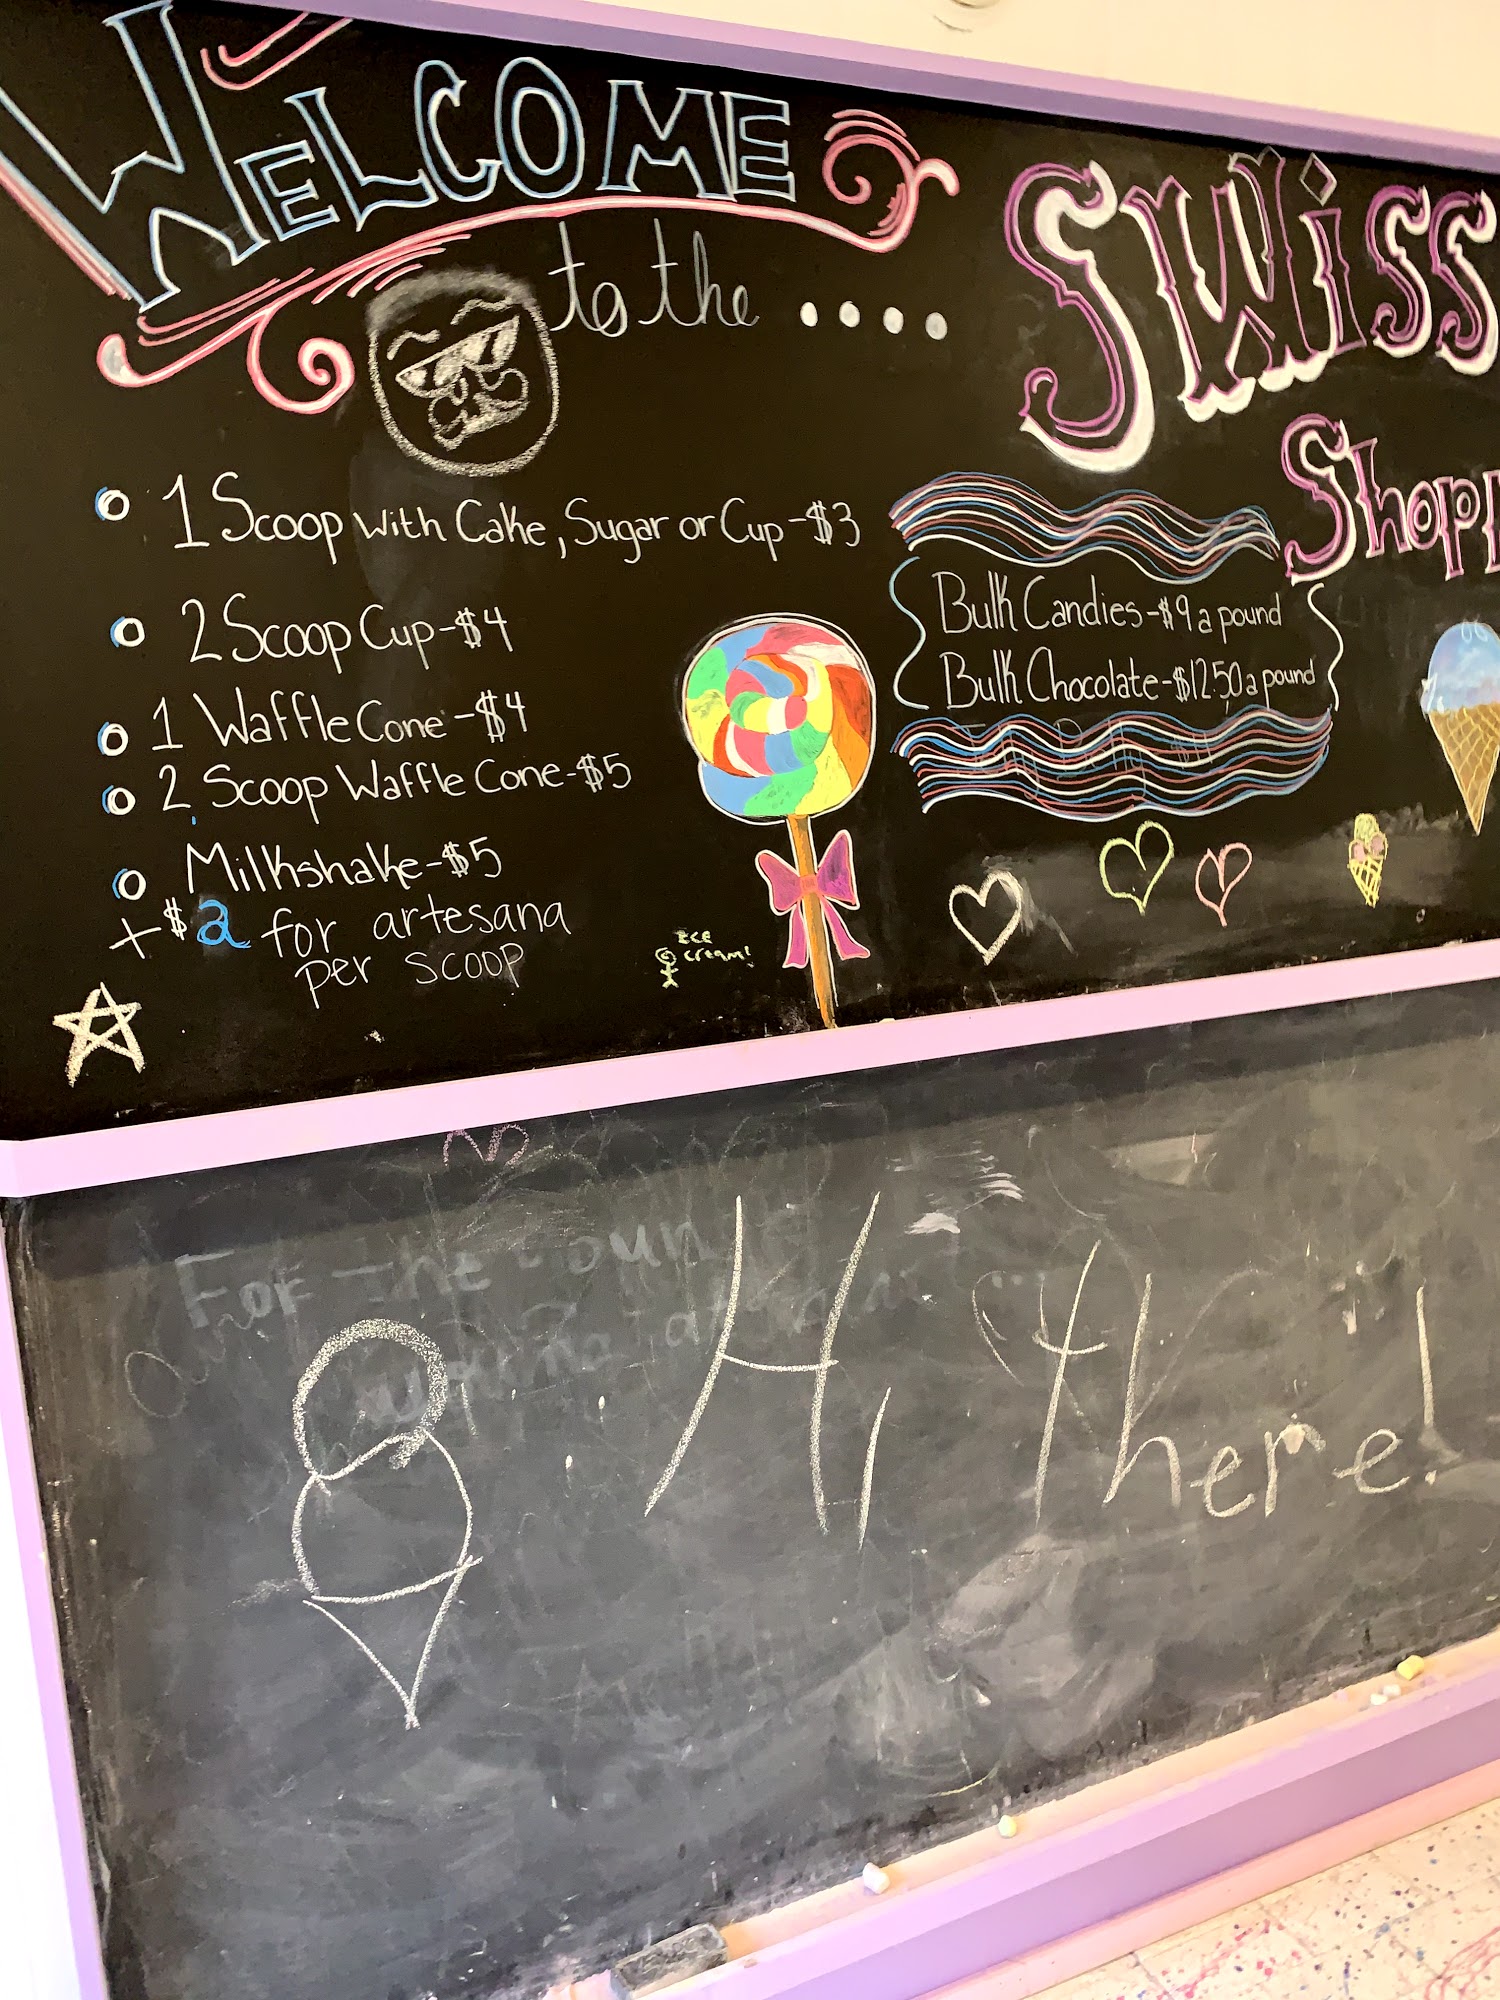 WELCOME
to the ....
Swiss
Shopp
1 Scoop with Cake, Sugar or Cup - $3
2 Scoop Cup - $4
1 Waffle Cone - $4
2 Scoop Waffle Cone - $5
Milkshake - $5
+ $2 for artesana
per scoop
Bulk Candies - $9 a pound
Bulk Chocolate - $12.50 a pound
Ice
cream!
For the
Hi there!